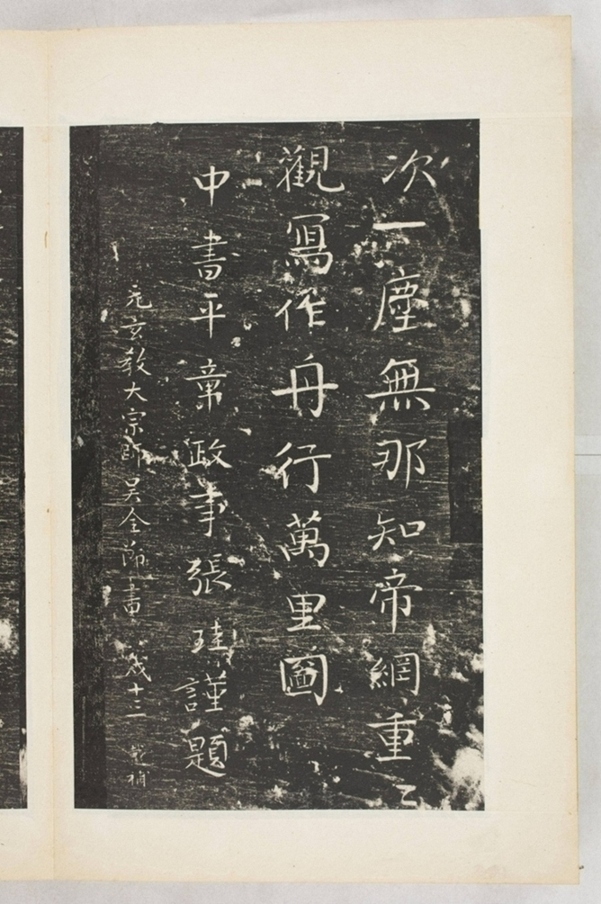 次一塵無那知帝網重〻
觀寫作舟行萬里圖
中書平章政事張珪謹題
元玄教大宗師吳全節畫 戌十三